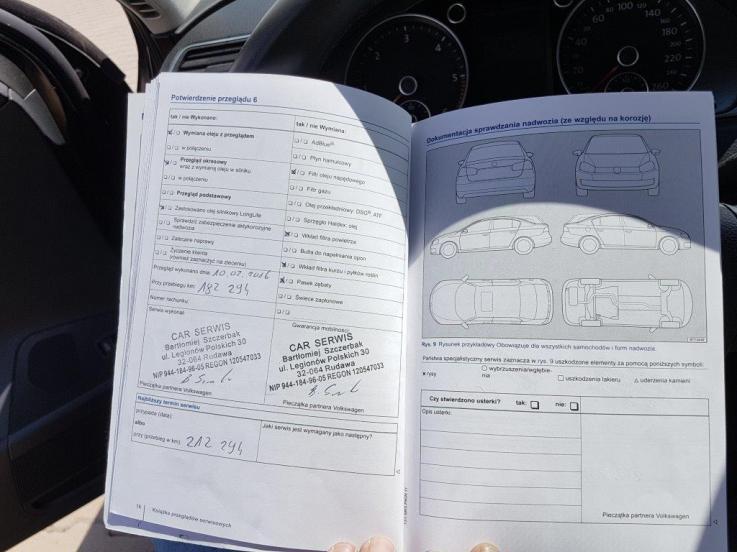 Potwierdzenie przeglądu 6
tak / nie Wykonano:
Wymiana oleju z przeglądem
w połączeniu
Przegląd okresowy
wraz z wymianą oleju w silniku
w połączeniu
Przegląd podstawowy
Zastosowano olej silnikowy LongLife
Sprawdzić zabezpieczenie antykorozyjne
nadwozia
Zalecane naprawy
Życzenie klienta
(również zaznaczyć na zleceniu)
Przegląd wykonano dnia: 10.02.2016
Przy przebiegu km: 182 294
Numer rachunku:
Serwis wykonał:
CAR SERWIS
Bartłomiej Szczerbak
ul. Legionów Polskich 30
32-064 Rudawa
NIP 944-184-96-05 REGON 120547033
Pieczątka partnera Volkswagen
tak / nie Wymiana:
AdBlue®
Płyn hamulcowy
Filtr oleju napędowego
Filtr gazu
Olej przekładniowy: DSG®, ATF
Sprzęgło Haldex: olej
Wkład filtra powietrza
Butla do napełniania opon
Wkład filtra kurzu i pyłków roślin
Pasek zębaty
Świece zapłonowe
Gwarancja mobilności:
CAR SERWIS
Bartłomiej Szczerbak
ul. Legionów Polskich 30
32-064 Rudawa
NIP 944-184-96-05 REGON 120547033
Pieczątka partnera Volkswagen
Najbliższy termin serwisu
przypada (data):
albo
przy (przebieg w km): 212 294
Jaki serwis jest wymagany jako następny?
16 Książka przeglądów serwisowych
Dokumentacja sprawdzania nadwozia (ze względu na korozję)
Rys. 9 Rysunek przykładowy Obowiązuje dla wszystkich samochodów i form nadwozia.
Państwa specjalistyczny serwis zaznacza w rys. 9 uszkodzone elementy za pomocą poniższych symboli:
x rysy
wybrzuszenia/wgłębie-
nia
uszkodzenia lakieru
uderzenia kamieni
Czy stwierdzono usterki? tak: nie:
Opis usterki:
Pieczątka partnera Volkswagen